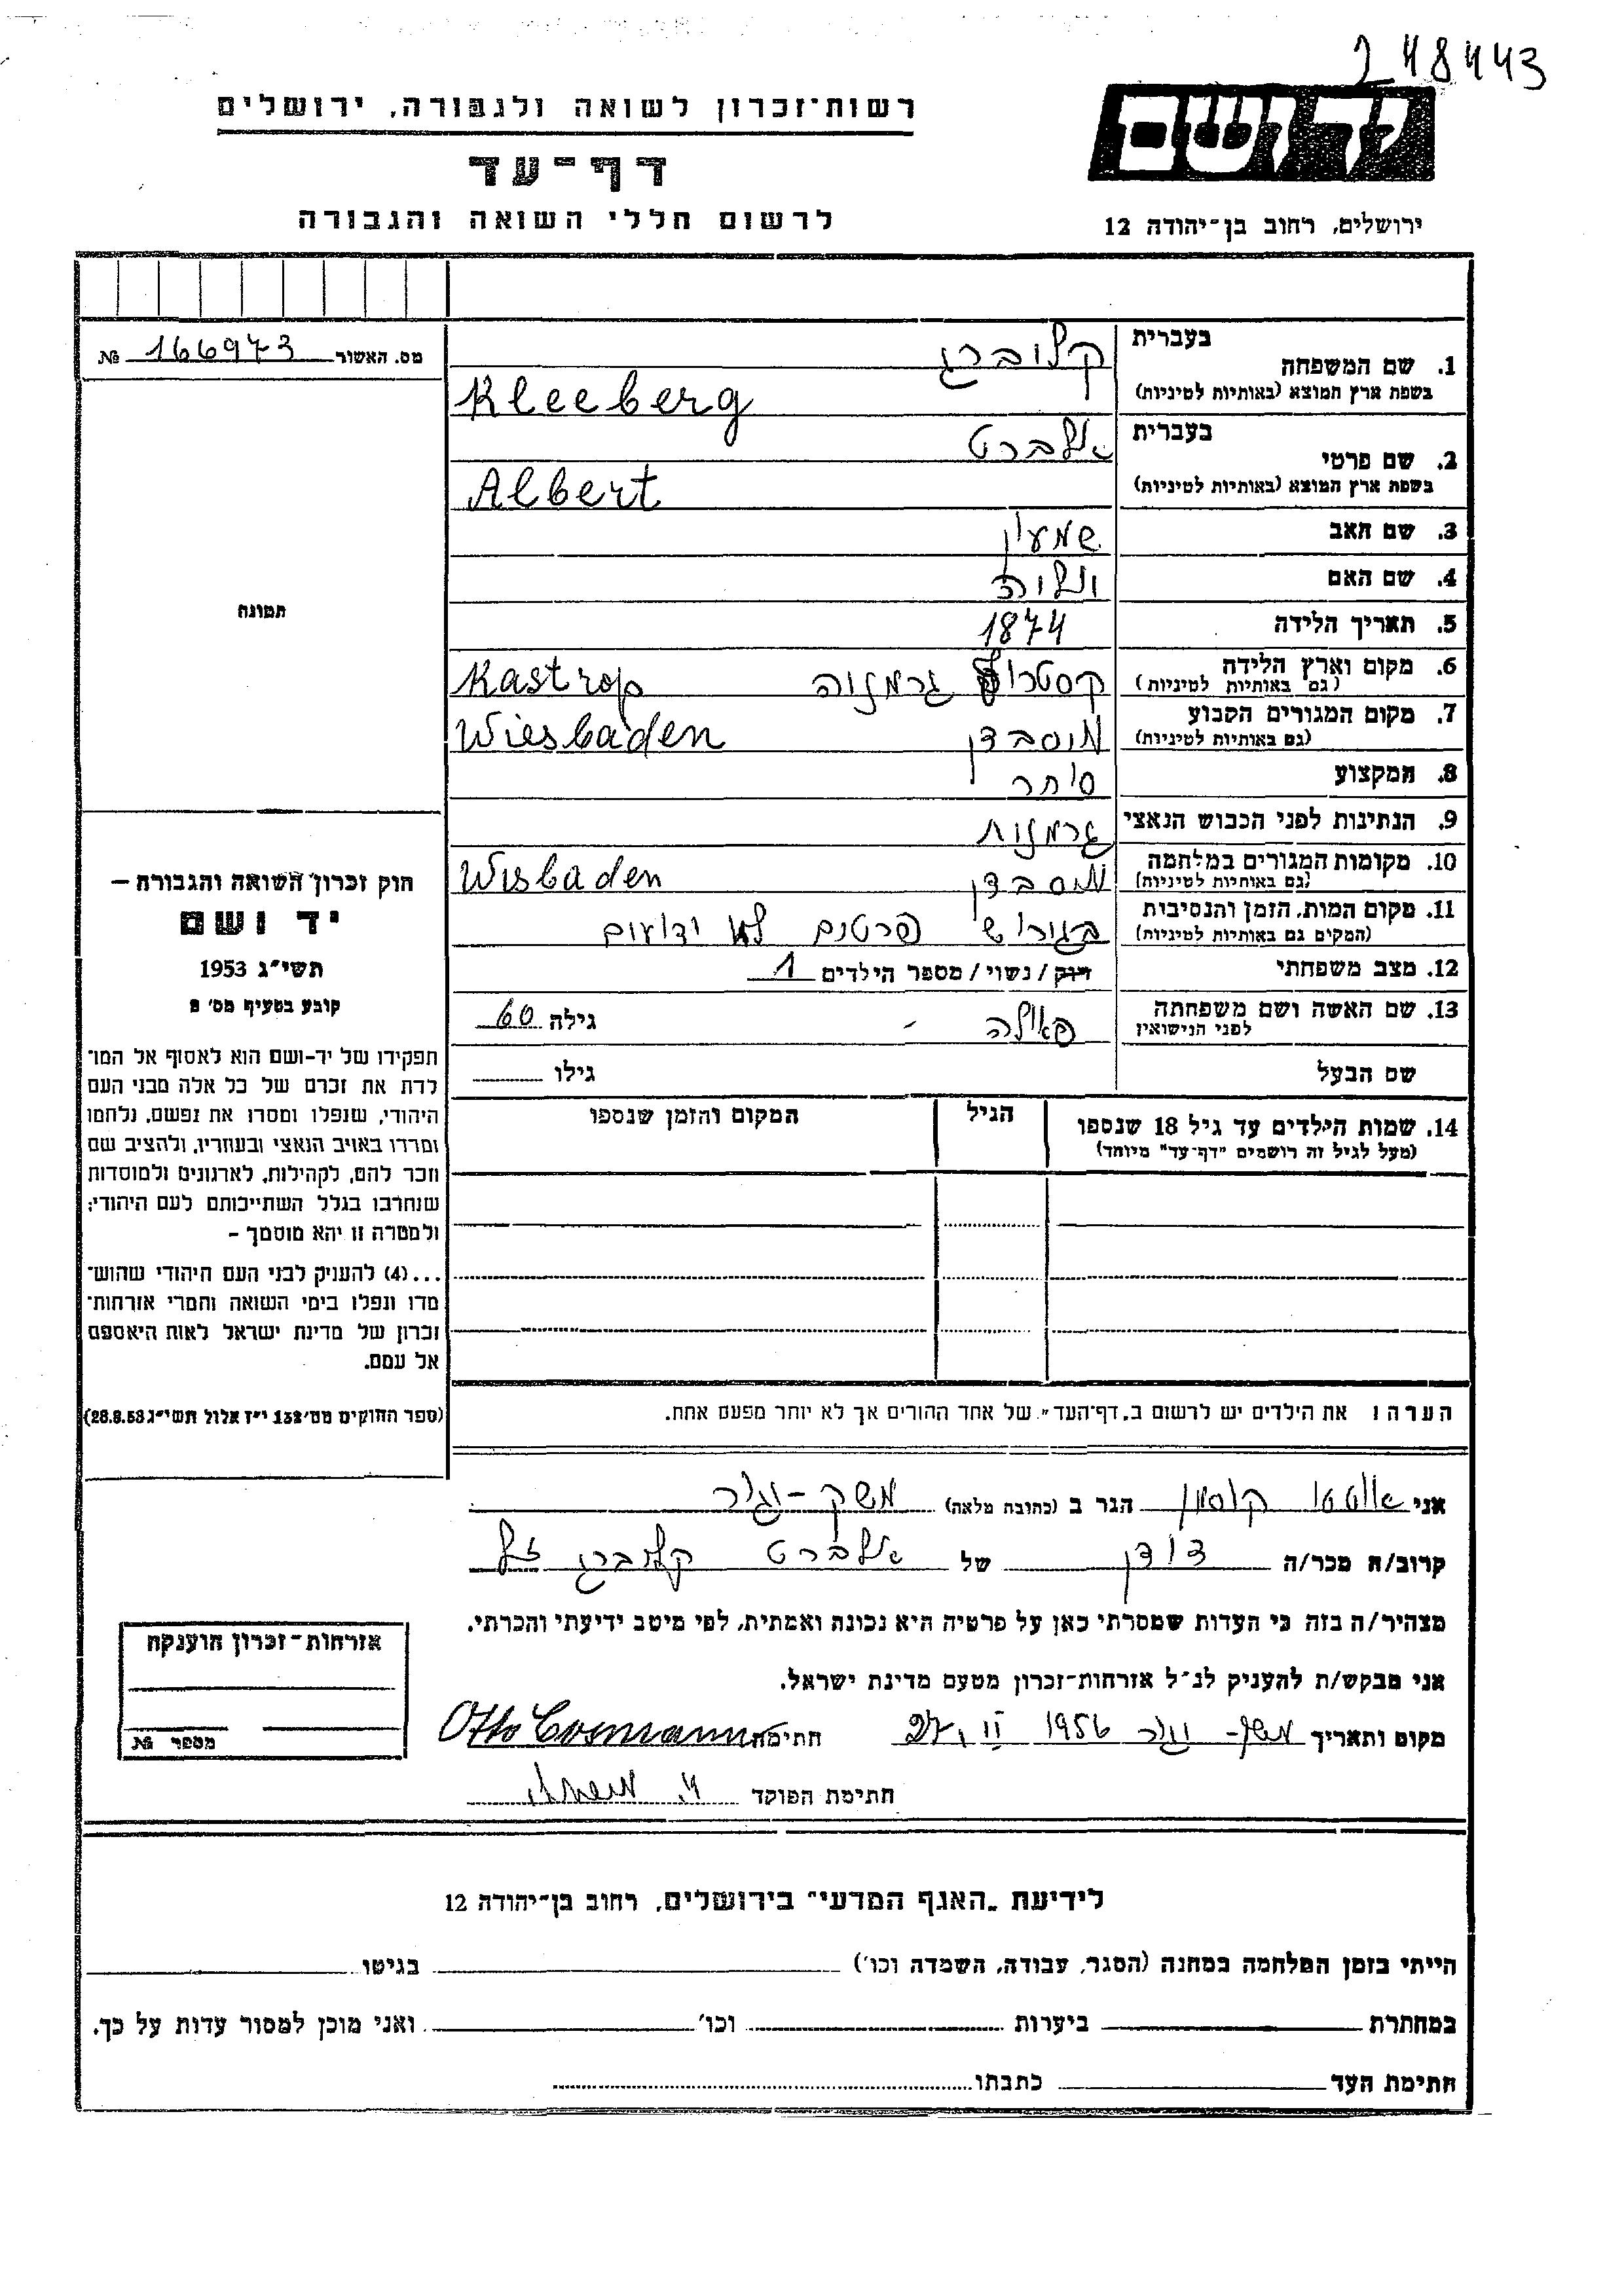 248443
יד ושם
רשות־זכרון לשואה ולגבורה, ירושלים
דף־עד
לרשום חללי השואה והגבורה
ירושלים, רחוב בן־יהודה 12
מס. האשור 166973 №
תמונה
חוק זכרון השואה והגבורה —
יד ושם
תשי״ג 1953
קובע בסעיף מס׳ 2
תפקידו של יד-ושם הוא לאסוף אל המו־
לדת את זכרם של כל אלה מבני העם
היהודי, שנפלו ומסרו את נפשם, נלחמו
ומרדו באויב הנאצי ובעוזריו, ולהציב שם
וזכר להם, לקהילות, לארגונים ולמוסדות
שנחרבו בגלל השתייכותם לעם היהודי;
ולמטרה זו יהא מוסמך –
...(4) להעניק לבני העם היהודי שהוש־
מדו ונפלו בימי השואה והמרי אזרחות־
זכרון של מדינת ישראל לאות היאספם
אל עמם.
(ספר החוקים מס׳ 132 י״ז אלול תשי״ג 28.8.53)
בעברית קלוברג
1. שם המשפחה
בשפת ארץ המוצא (באותיות לטיניות) Kleeberg
בעברית אלברט
2. שם פרטי
בשפת ארץ המוצא (באותיות לטיניות) Albert
3. שם האב שמעון
4. שם האם
5. תאריך הלידה 1874
6. מקום וארץ הלידה קסטרופ גרמניה Kastrop
(גם באותיות לטיניות)
7. מקום המגורים הקבוע ויסבדן Wiesbaden
(גם באותיות לטיניות)
8. המקצוע סוחר
9. הנתינות לפני הכבוש הנאצי גרמנית
10. מקומות המגורים במלחמה ויסבדן Wisbaden
(גם באותיות לטיניות)
11. מקום המות, הזמן והנסיבות פרטים לא ידועים
(המקום גם באותיות לטיניות)
12. מצב משפחתי רווק / נשוי / מספר הילדים 1
13. שם האשה ושם משפחתה פאולה - גילה 60
לפני הנישואין
שם הבעל גילו
14. שמות הילדים עד גיל 18 שנספו הגיל המקום והזמן שנספו
(מעל לגיל זה רושמים "דף־עד" מיוחד)
הערה: את הילדים יש לרשום ב„דף־העד״ של אחד ההורים אך לא יותר מפעם אחת.
אני אוטו קוסמן הגר ב (כתובת מלאה) משק - יגור
קרוב/ה מכר/ה דודן של אלברט קלוברג ז״ל
מצהיר/ה בזה כי העדות שמסרתי כאן על פרטיה היא נכונה ואמתית, לפי מיטב ידיעתי והכרתי.
אני מבקש/ת להעניק לנ״ל אזרחות־זכרון מטעם מדינת ישראל.
מקום ותאריך משק - יגור 1956 II 27. חתימה Otto Cosmann
חתימת הפוקד
אזרחות־זכרון הוענקה
מספר №
לידיעת „האגף המדעי״ בירושלים, רחוב בן־יהודה 12
הייתי בזמן המלחמה במחנה (הסגר, עבודה, השמדה וכו׳) בגיטו
במחתרת ביערות וכו׳ ואני מוכן למסור עדות על כך.
חתימת העד כתבתו